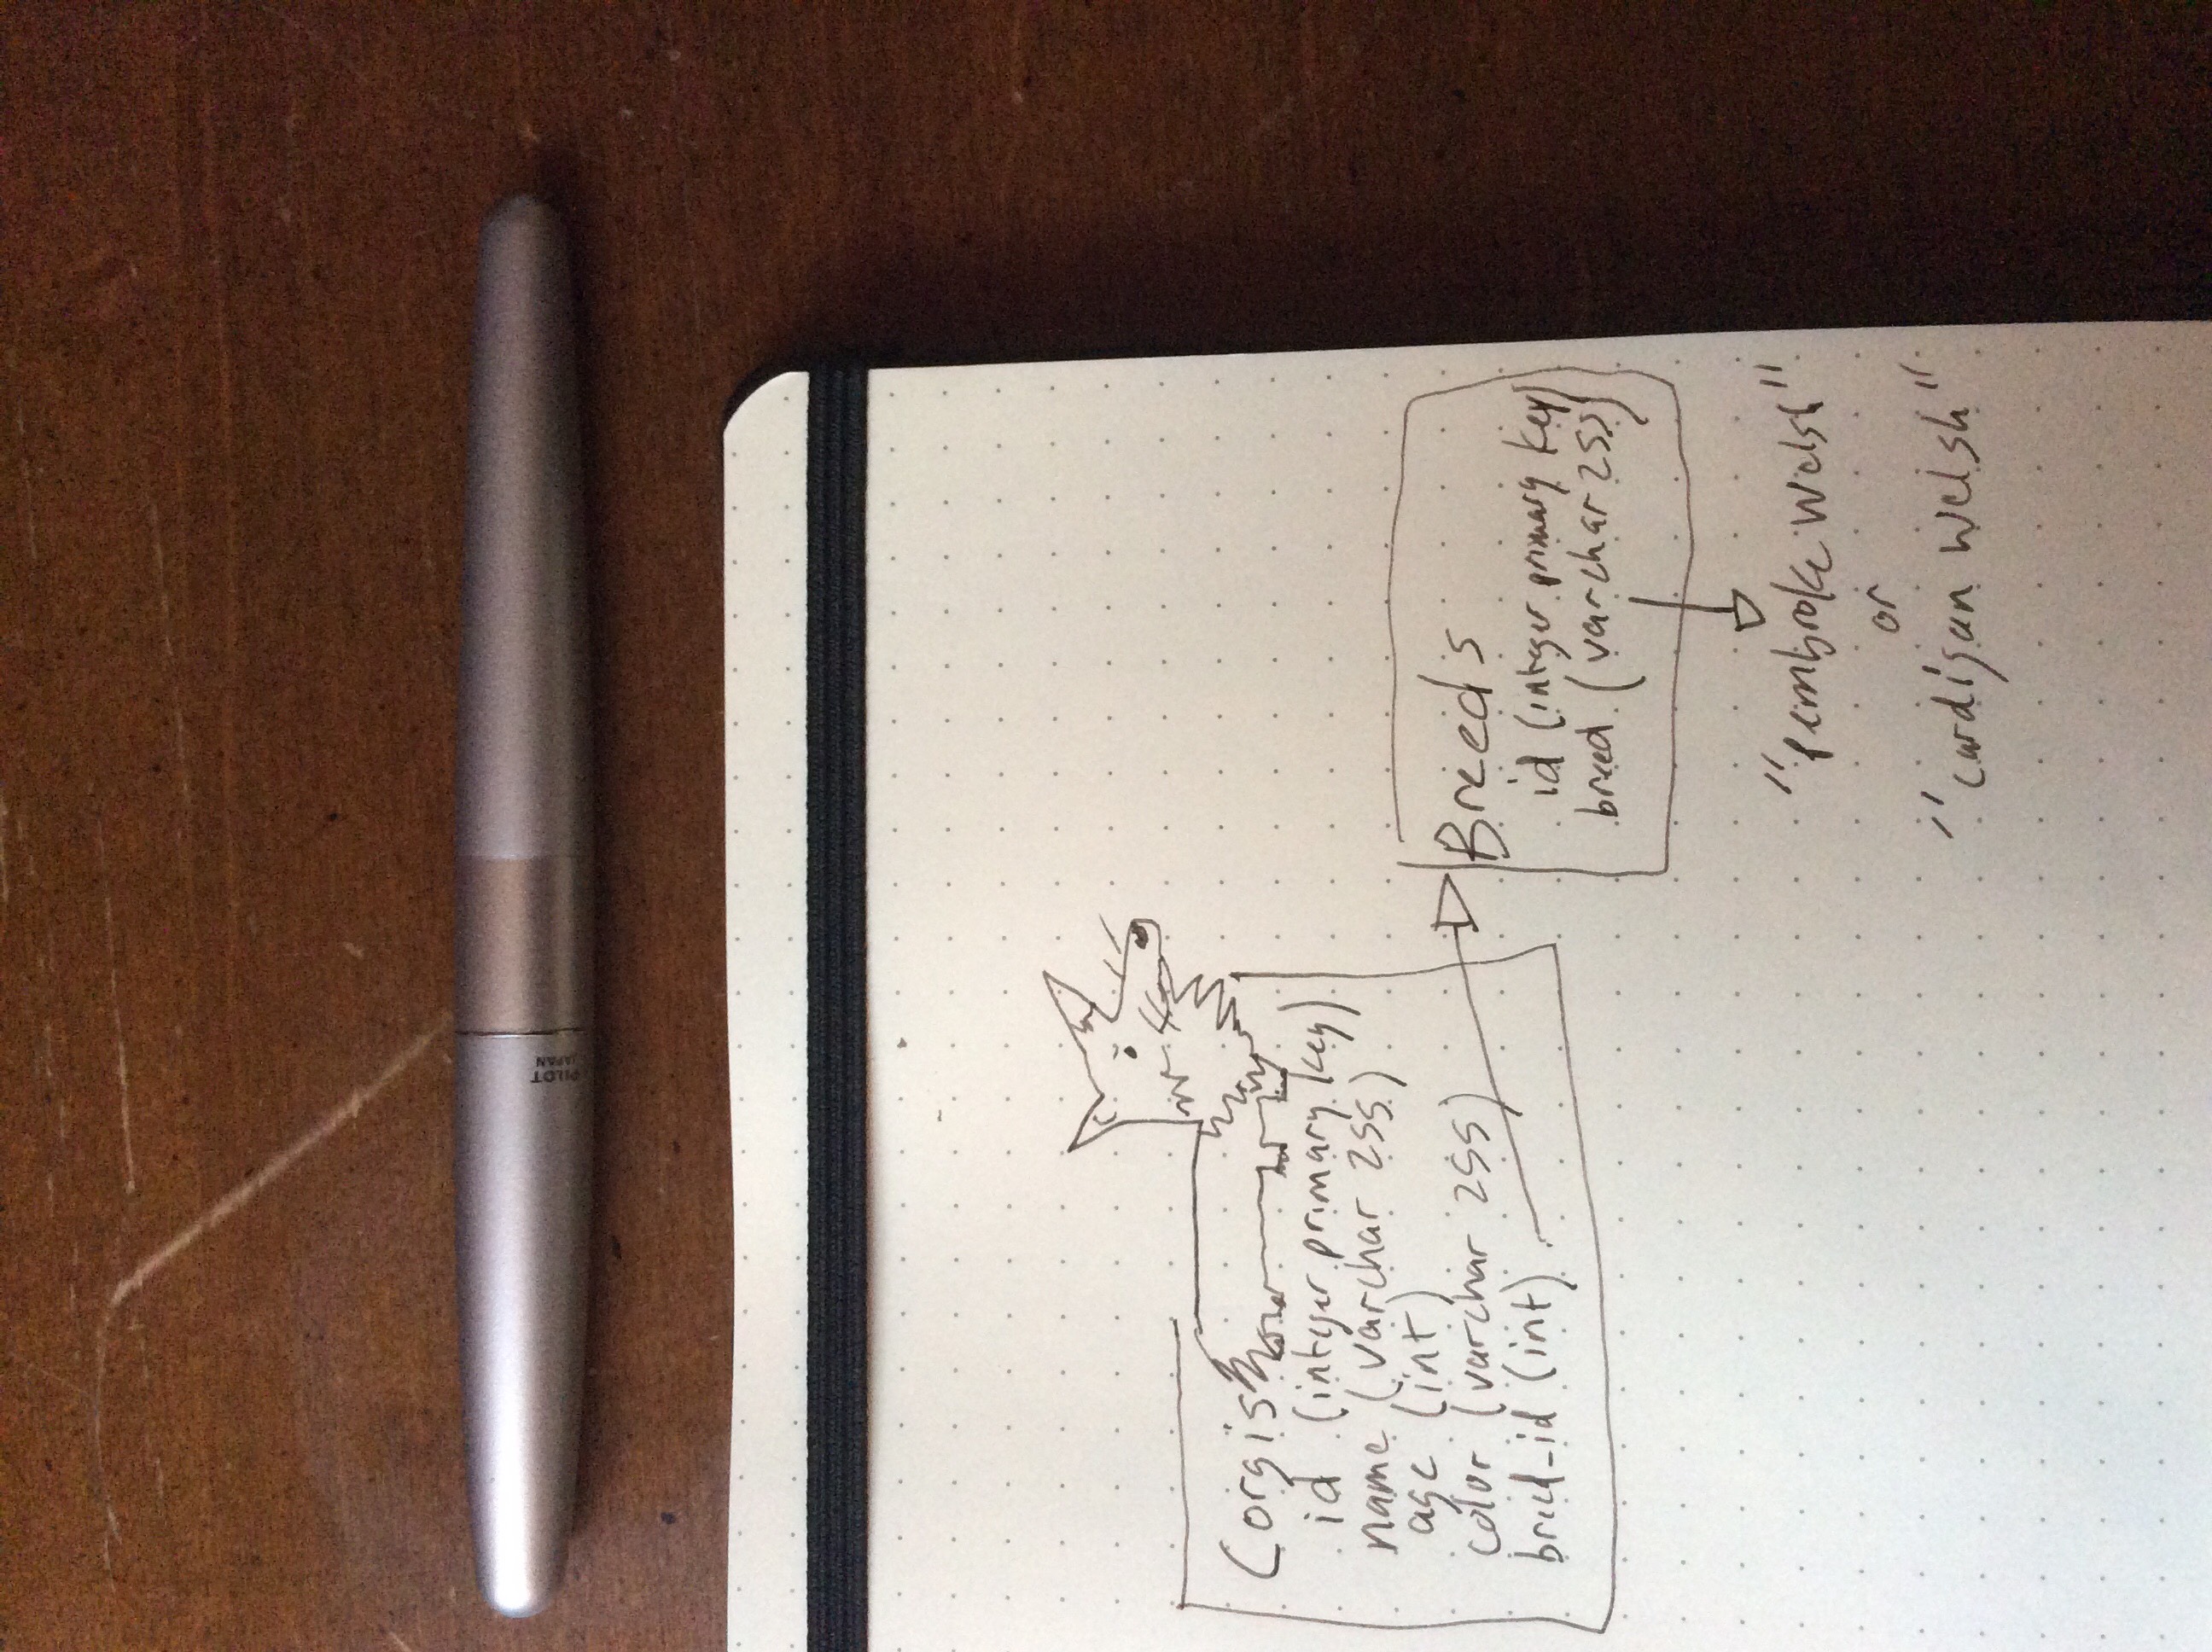 PILOT
JAPAN
Corgis
id (integer primary key)
name (varchar 255)
age (int)
color (varchar 255)
breed_id (int)
Breeds
id (integer primary key)
breed (varchar 255)
"Pembroke Welsh"
or
"Cardigan Welsh"